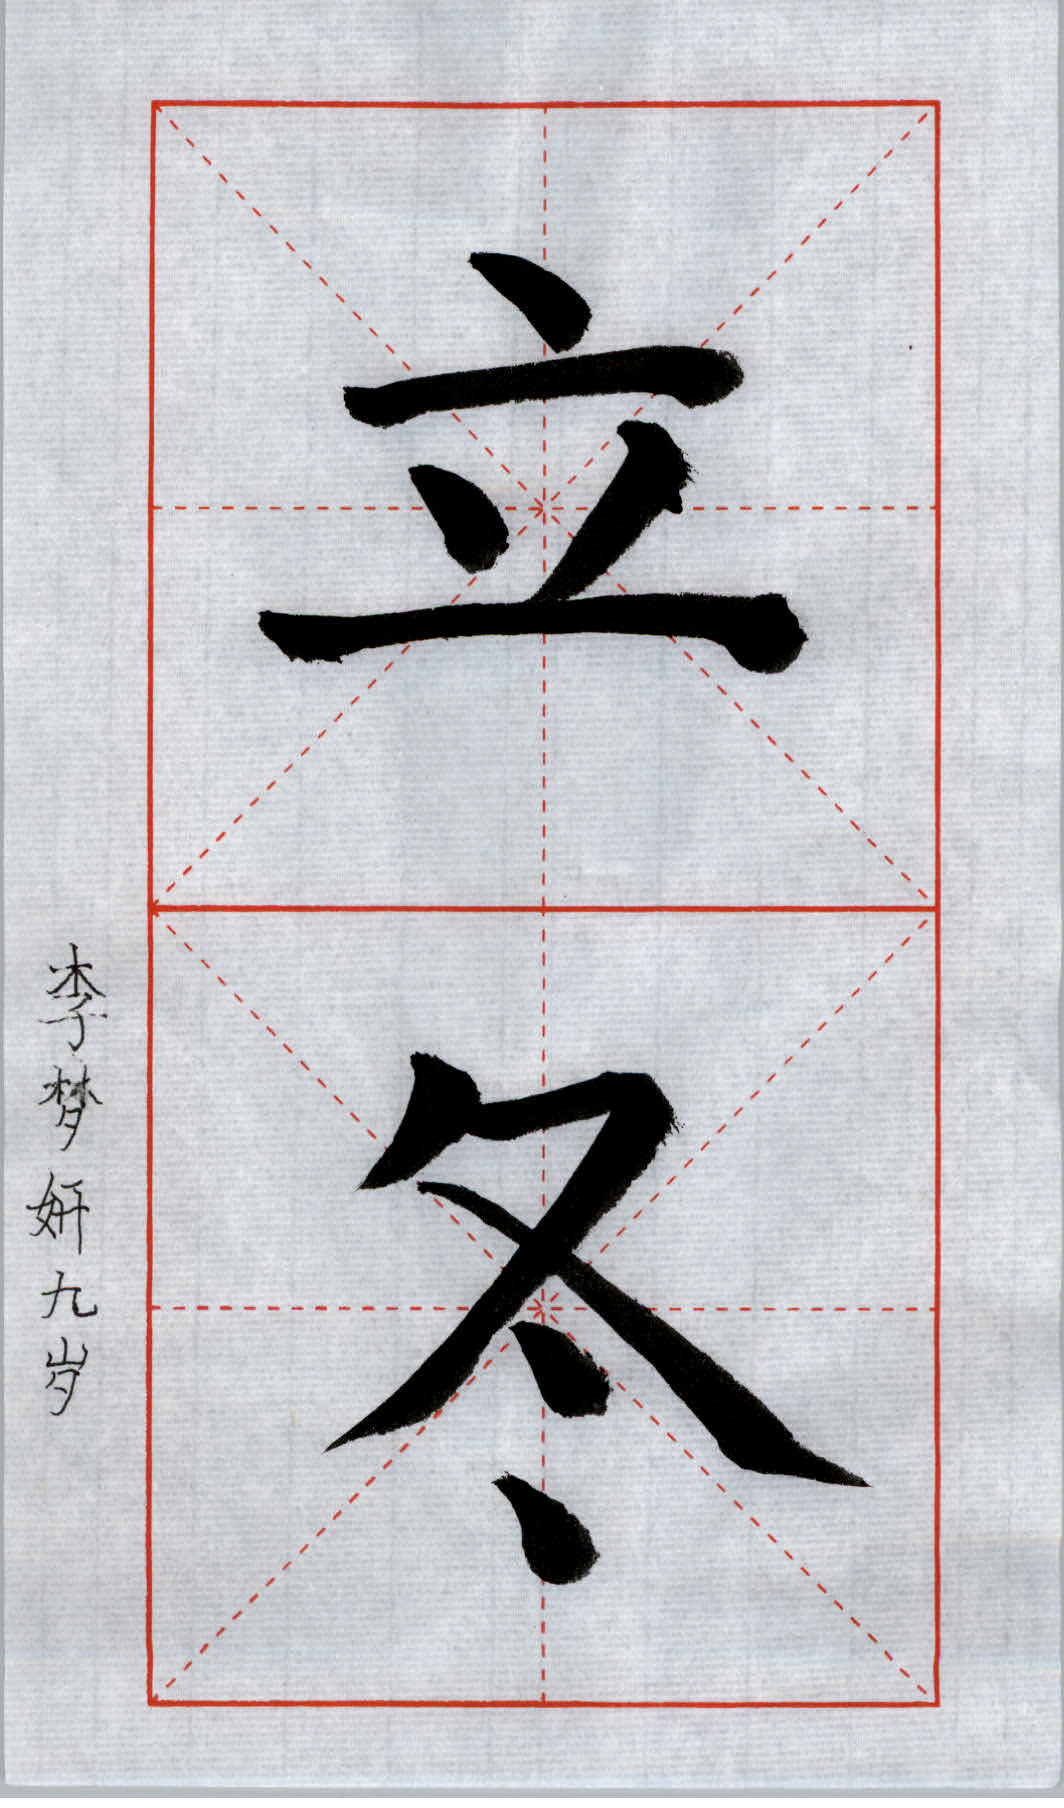 立冬
李梦妍九岁